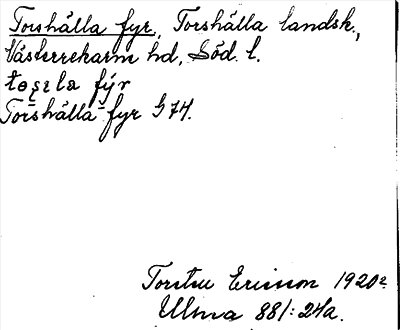 Torshälla fyr, Torshälla landsk.,
Västerrekarne hd, Söd. l.
Torshälla fyr G 74.
Torsten Ericsson 1920
Ulma 881:24a.